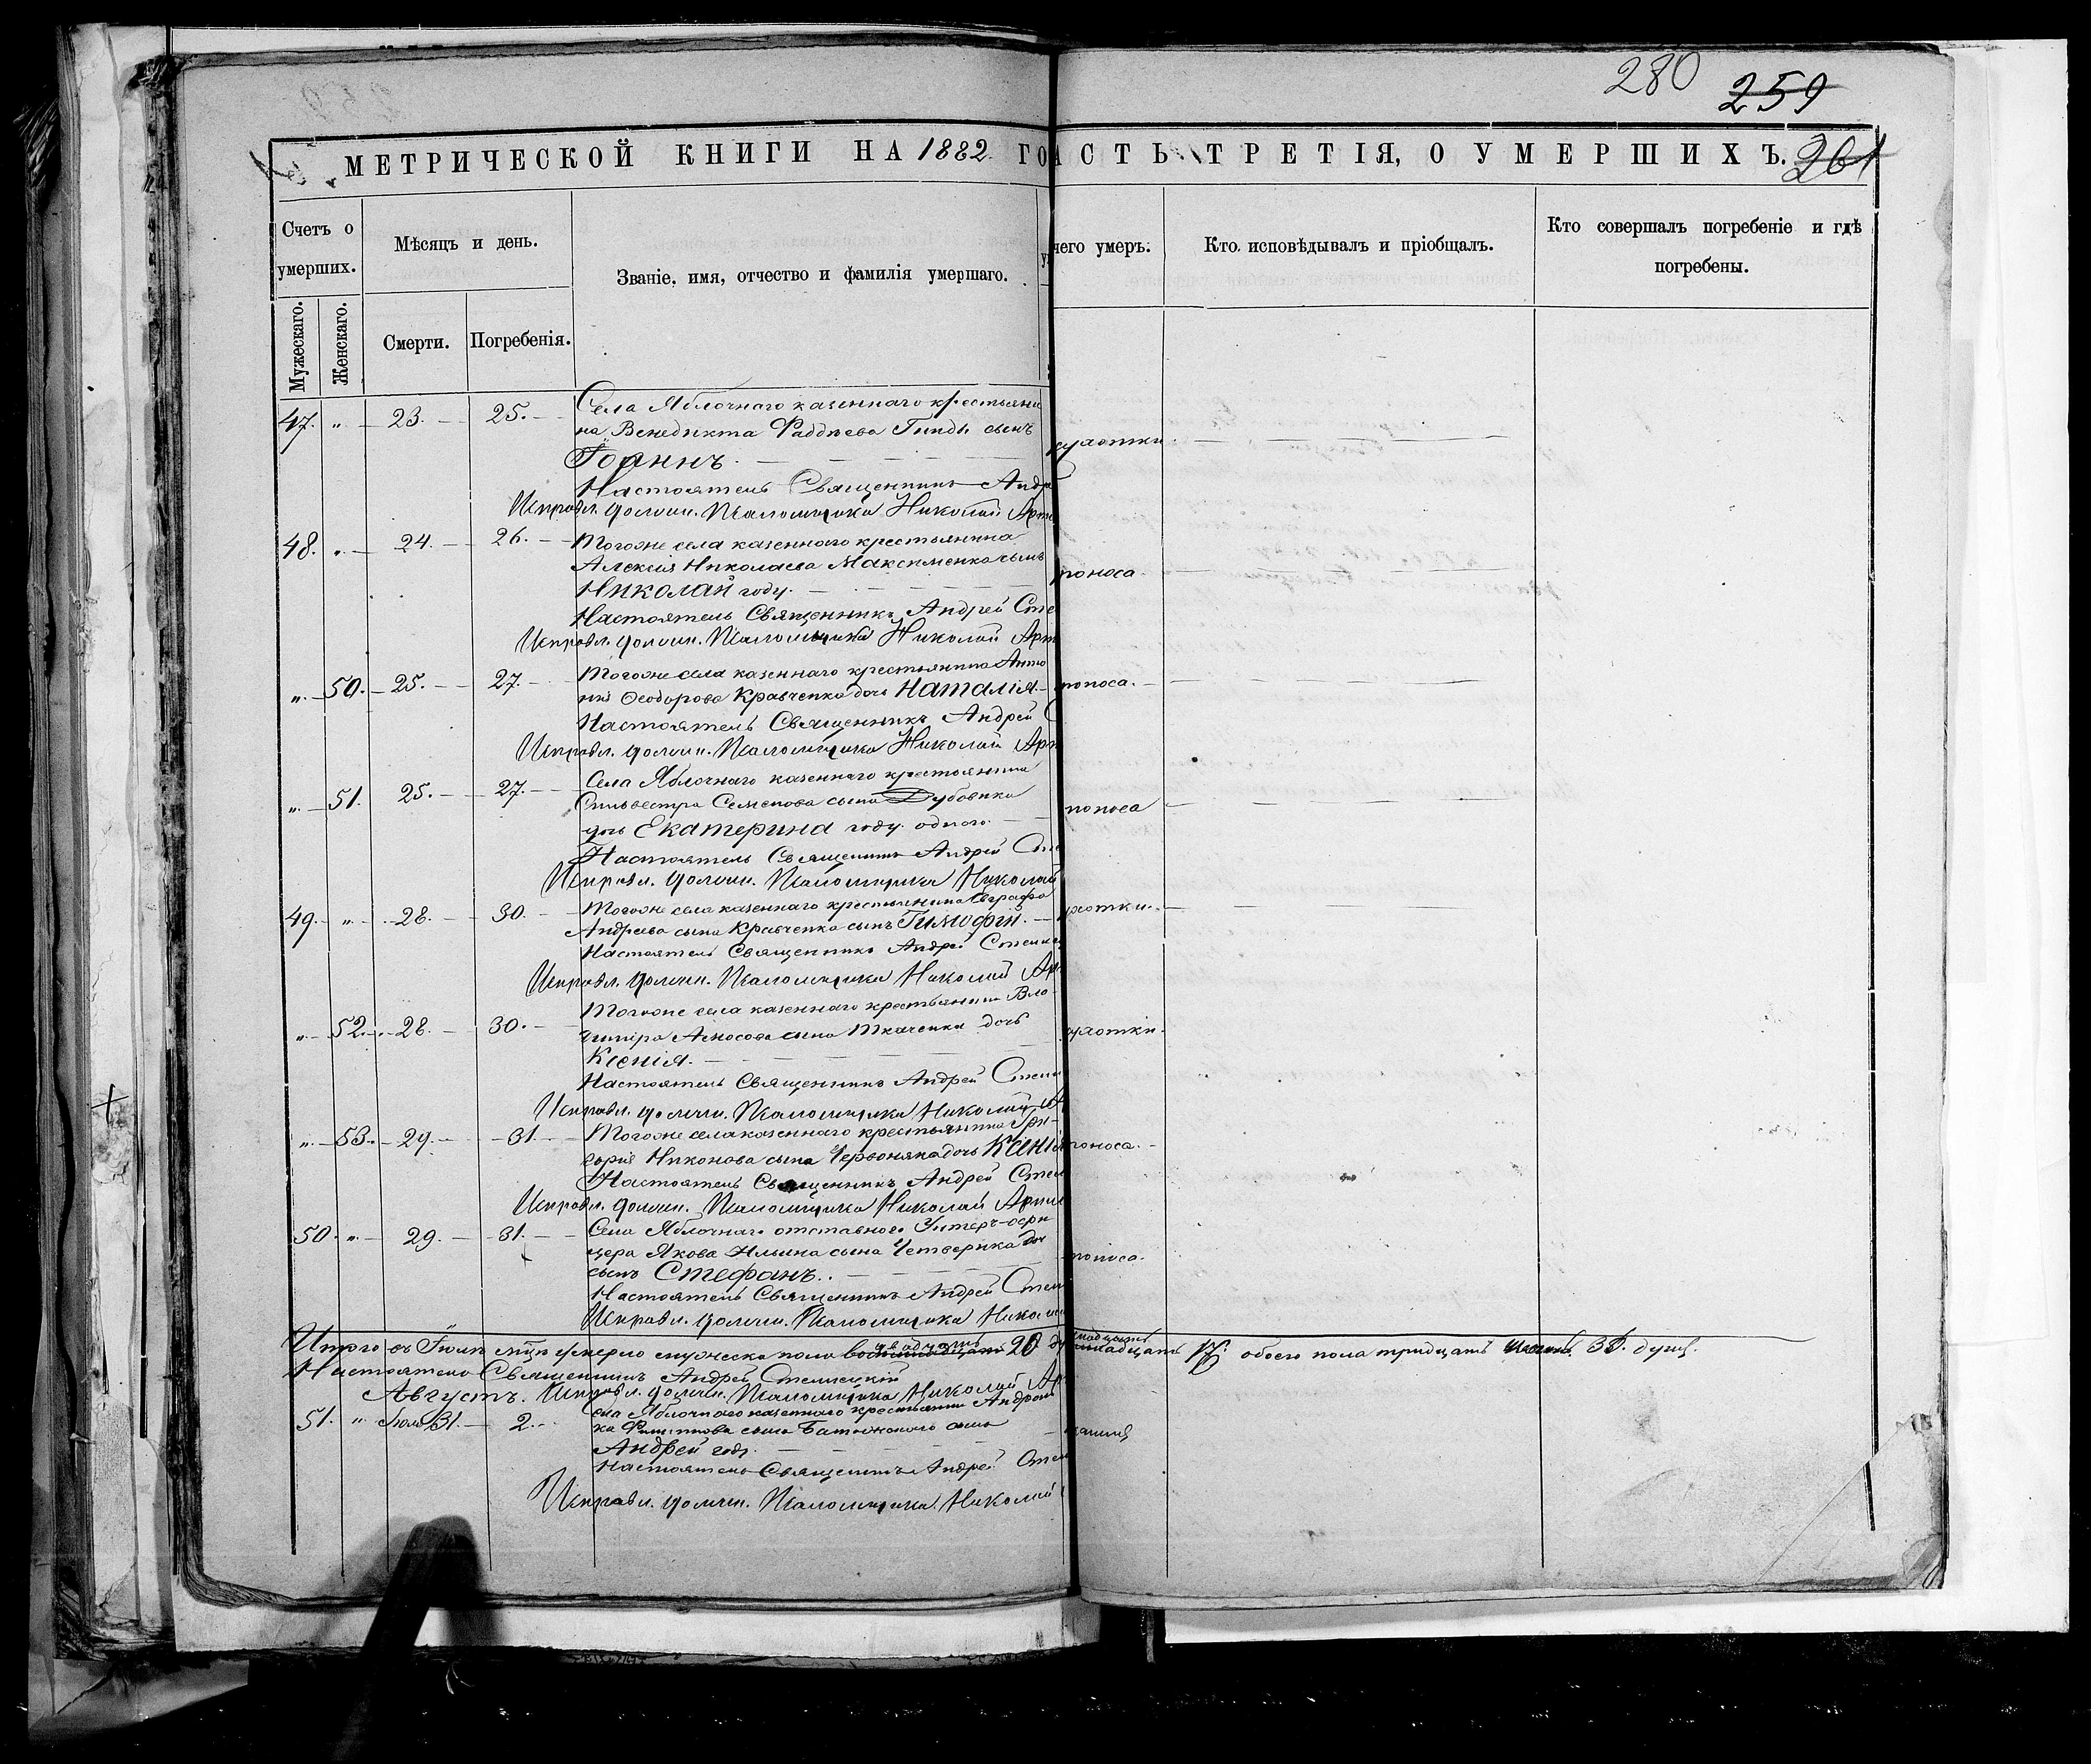 280
259
МЕТРИЧЕСКОЙ КНИГИ НА 1882 ГО
АСТЬ ТРЕТІЯ, О УМЕРШИХЪ.
261
Счетъ о умерших.
Мужескаго.
Женскаго.
Мѣсяцъ и день.
Смерти.
Погребенія.
Званіе, имя, отчество и фамилія умершаго.
чего умеръ.
Кто исповѣдывалъ и пріобщалъ.
Кто совершалъ погребеніе и гдѣ
погребены.
47. " 23. 25. Села Яблочнаго казеннаго крестьяни
на Венедикта Фаддѣева сынъ
Іоаннъ.
Настоятель Священникъ Андр
Исправл. должн. Псаломщика Николай Арте
48. " 24. 26. Тогоже села казеннаго крестьянина
Алексія Николаева Максименка сынъ
Николай году. поноса.
Настоятель Священникъ Андрей Сте
Исправл. должн. Псаломщика Николай Арт
" 50. 25. 27. Тогоже села казеннаго крестьянина Анто
нія Ѳеодорова Кравченка дочь Наталія. поноса.
Настоятель Священникъ Андрей С
Исправл. должн. Псаломщика Николай Арт
" 51. 25. 27. Села Яблочнаго казеннаго крестьянина
Сильвестра Семенова сына Дубовика
дочь Екатерина году одного поноса
Настоятель Священникъ Андрей Сте
Исправл. должн. Псаломщика Николай
49. " 28. 30. Тогоже села казеннаго крестьянина Евграфа
Андреева сына Кравченка сынъ Тимофѣй.
Настоятель Священникъ Андрей Стели
Исправл. должн. Псаломщика Николай Ар
" 52. 28. 30. Тогоже села казеннаго крестьянина Вла
диміра сына Ткаченка дочь
Ксенія.
Настоятель Священникъ Андрей Стели
Исправл. должн. Псаломщика Николай Ар
" 53. 29. 31. Тогоже села казеннаго крестьянина Гри-
горія Никонова сына Червоняка дочь Ксенія поноса.
Настоятель Священникъ Андрей Стел
Исправл. должн. Псаломщика Николай Арте
50. " 29. 31. Села Яблочнаго отставнаго Унтеръ-офи
цера Якова Ильина сына Четверика
сынъ Стефанъ. поноса.
Настоятель Священникъ Андрей Стели
Исправл. должн. Псаломщика Николай
Итого въ Іюлѣ м-цѣ умерло мужеска пола двадцать 20 обоего пола тридцать душъ.
Настоятель Священникъ Андрей Стелецкій
Августъ. Исправл. должн. Псаломщика Николай Ар
51. " Іюля 31. 2. села Яблочнаго казеннаго крестьянина Андрони
ка Филиппова сына сынъ
Андрей году.
Настоятель Священникъ Андрей Стел
Исправл. должн. Псаломщика Николай